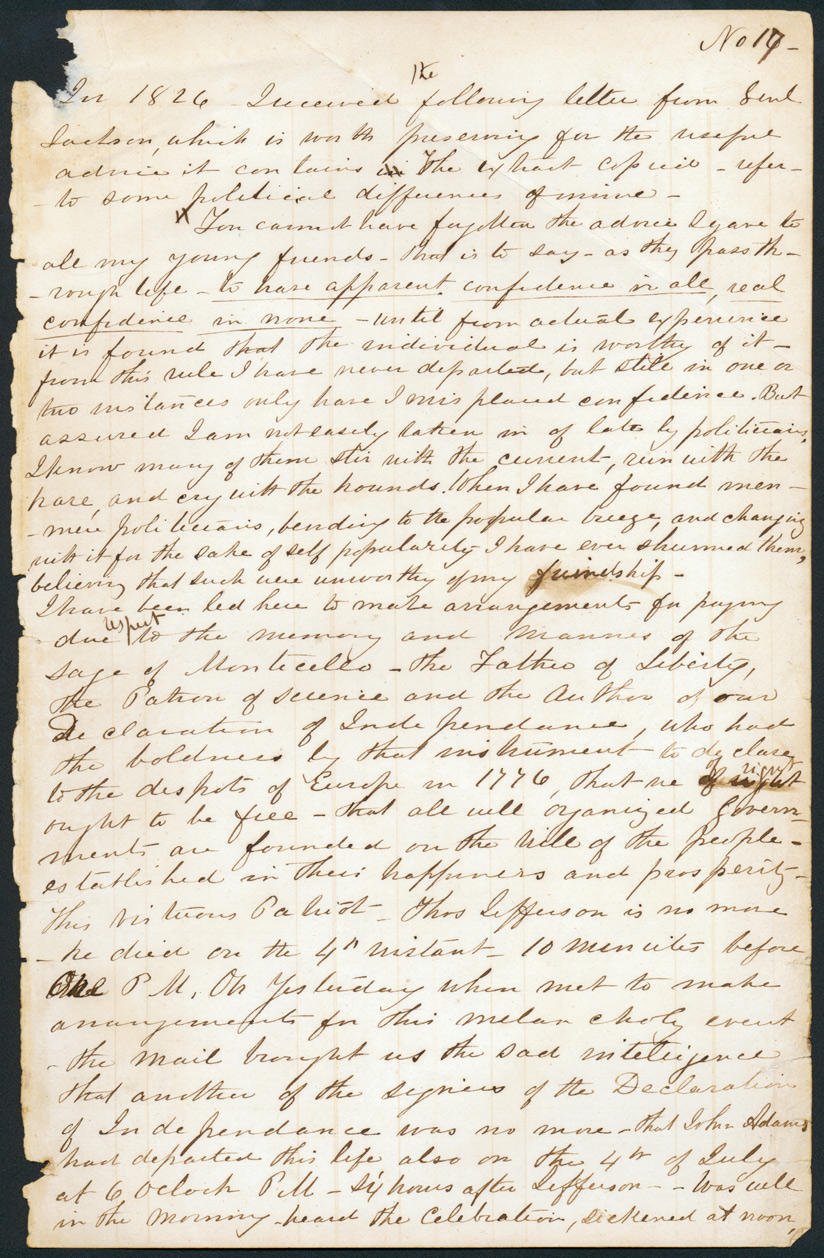 No 17-
In 1826 I received the following letter from Genl
Jackson, which is worth preserving for the useful
advice it contains in the extract copied - refer-
- to some political differences of mine -
x You cannot have forgotten the advice I gave to
all my young friends - that is to say - as they pass th-
- rough life - to have apparent confidence in all, real
confidence in none - until from actual experience
it is found that the individual is worthy of it -
from this rule I have never departed, but still in one or
two instances only have I misplaced confidence. But
assured I am not easily taken in of late by politicians,
I know many of them stir with the current, run with the
hare, and cry with the hounds. When I have found men -
- mere politicians, bending to the popular breeze, and changing
with it for the sake of self popularity I have ever shunned them,
believing that such were unworthy of my friendship -
I have been led here to make arrangements for paying
due respect to the memory and Mannes of the
sage of Monticello - the Father of Liberty,
the Patron of science and the Author of our
Declaration of Independance, who had
the boldness by that instrument to declare
to the despots of Europe in 1776, that we of right
ought to be free - that all well organized Govern-
ments are founded on the will of the people -
established in their happiness and prosperity -
This virtuous Patriot - Thos Jefferson is no more
- he died on the 4th instant - 10 minuites before
One P M, On Yesterday when met to make
arrangements for this melancholy event
- the mail brought us the sad intelligence
that another of the signers of the Declaration
of Independance was no more - that John Adams
had departed this life also on the 4th of July
at 6 Oclock P M - 5¼ hours after Jefferson - - was well
in the morning - heard the celebration, sickened at noon,